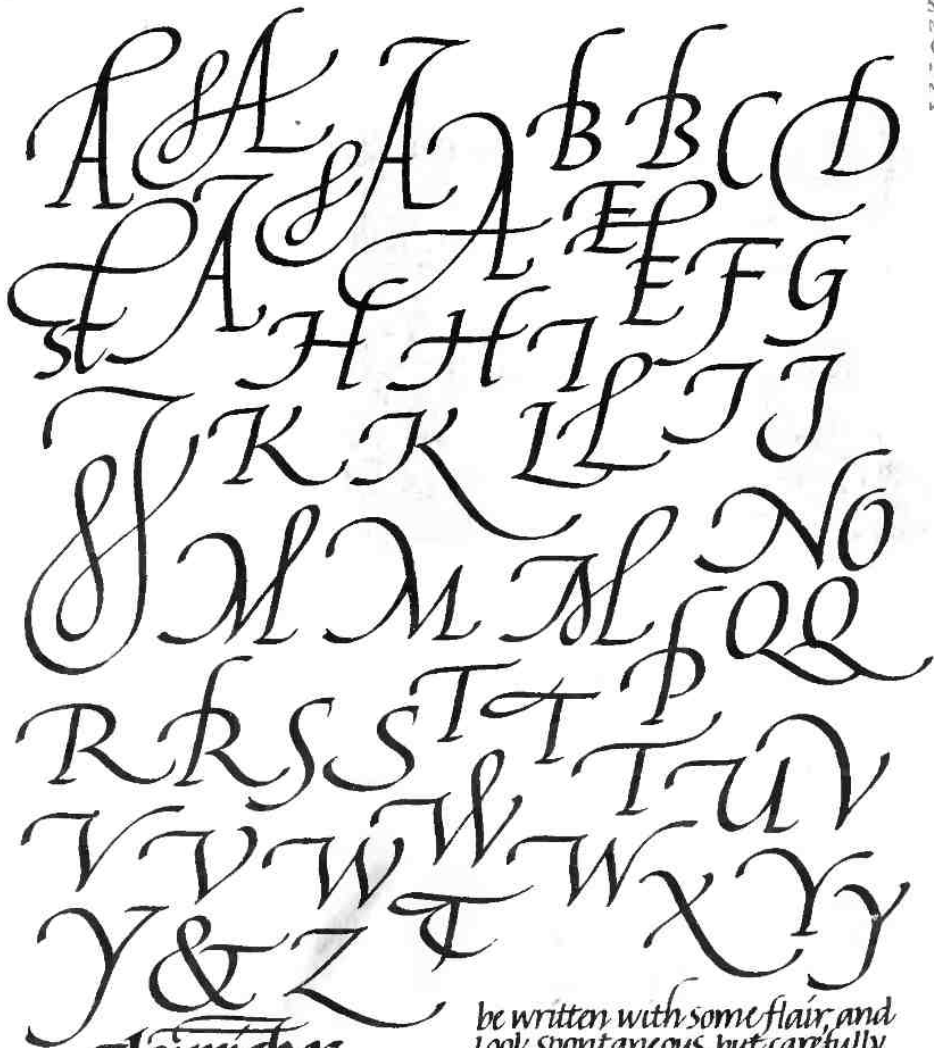 A A A B B C D
st A A E E F G
H H I
J K K L L I J
M M M N O
Q Q
R R S S T T P
T U V
V V W W W X Y y
Y & Z T
be written with some flair, and
look spontaneous, but carefully